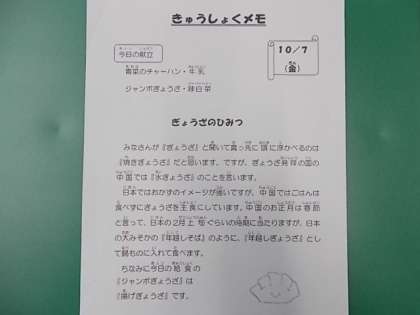 きゅうしょくメモ
今日の献立
10/7
(金)
青菜のチャーハン・牛乳
ジャンボぎょうざ・辣白菜
ぎょうざのひみつ
みなさんが『ぎょうざ』と聞いて真っ先に頭に浮かべるのは
『焼きぎょうざ』だと思います。ですが、ぎょうざ発祥の国の
中国では『水ぎょうざ』のことを言います。
日本ではおかずのイメージが強いですが、中国ではごはんは
食べずにぎょうざを主食にしています。中国のお正月は春節
と言って、日本の2月上旬ぐらいの時期に当たりますが、日本
の大みそかの『年越しそば』のように、『年越しぎょうざ』とし
て鍋ものに入れて食べます。
ちなみに今日の給食の
『ジャンボぎょうざ』は
『揚げぎょうざ』です。